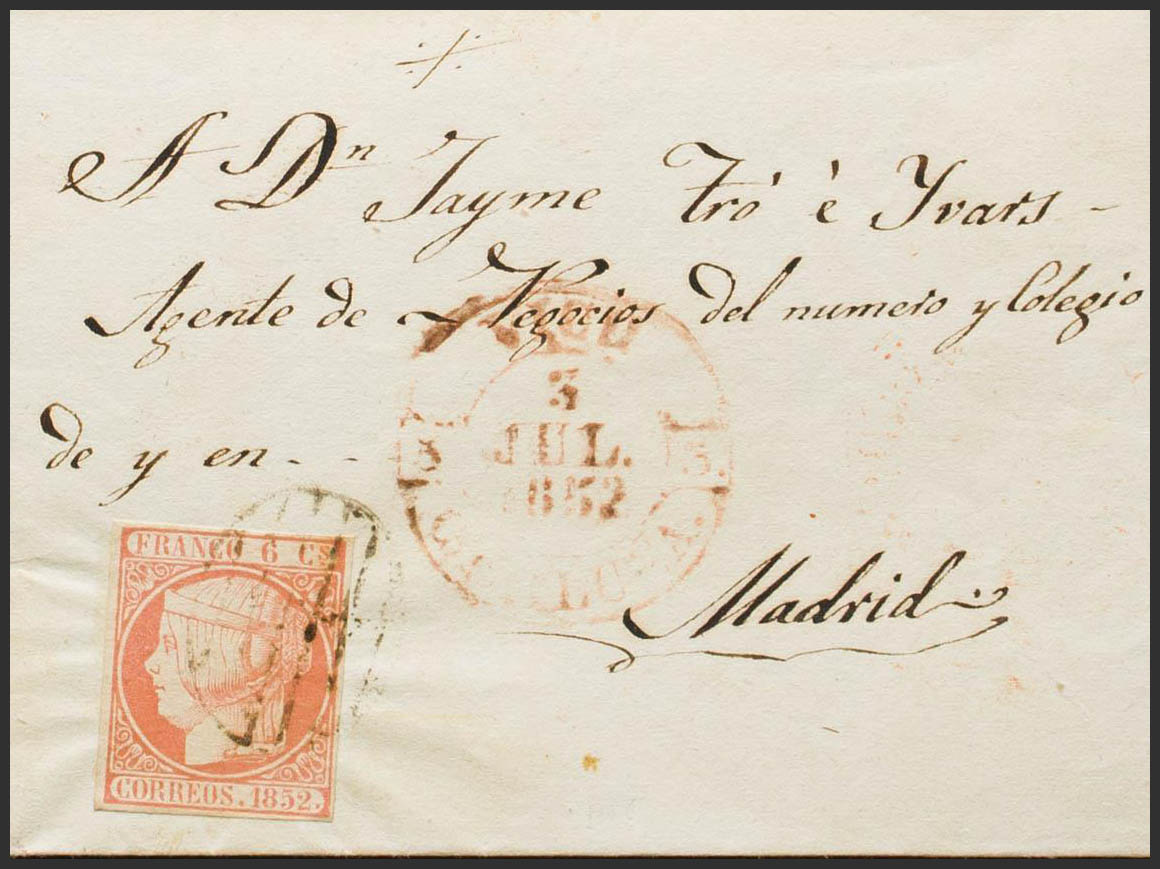 A Dn Jayme Tró è Yvars -
Agente de Negocios del numero y Colegio
de y en - -
3
JUL.
1852
5 5
Madrid
FRANCO 6 Cs
CORREOS. 1852.